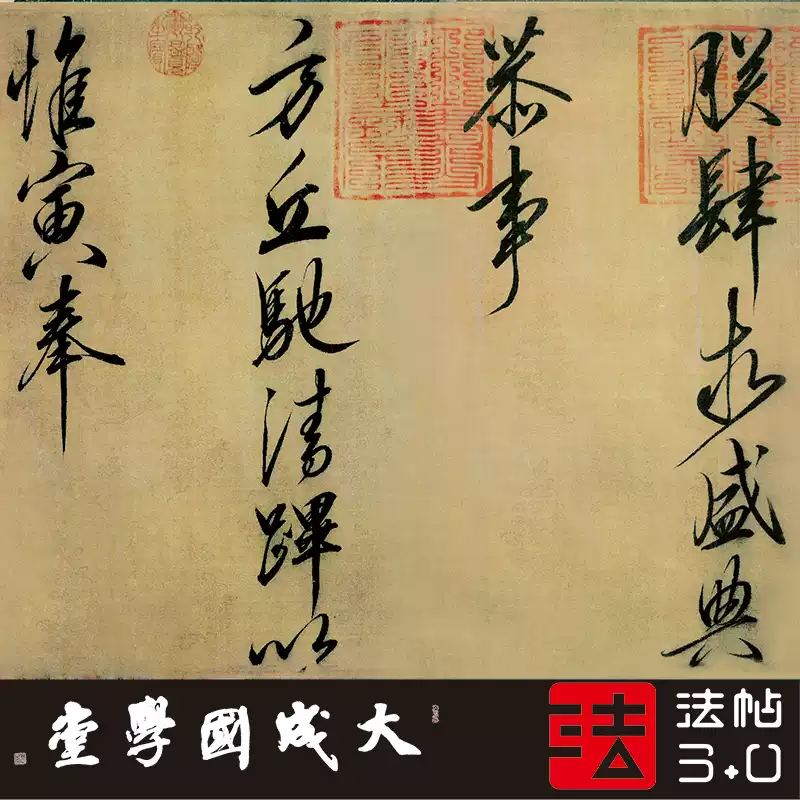 朕肆求盛典
恭事
方丘馳清蹕以
惟寅奉
大成國學堂
法
法帖
3.0